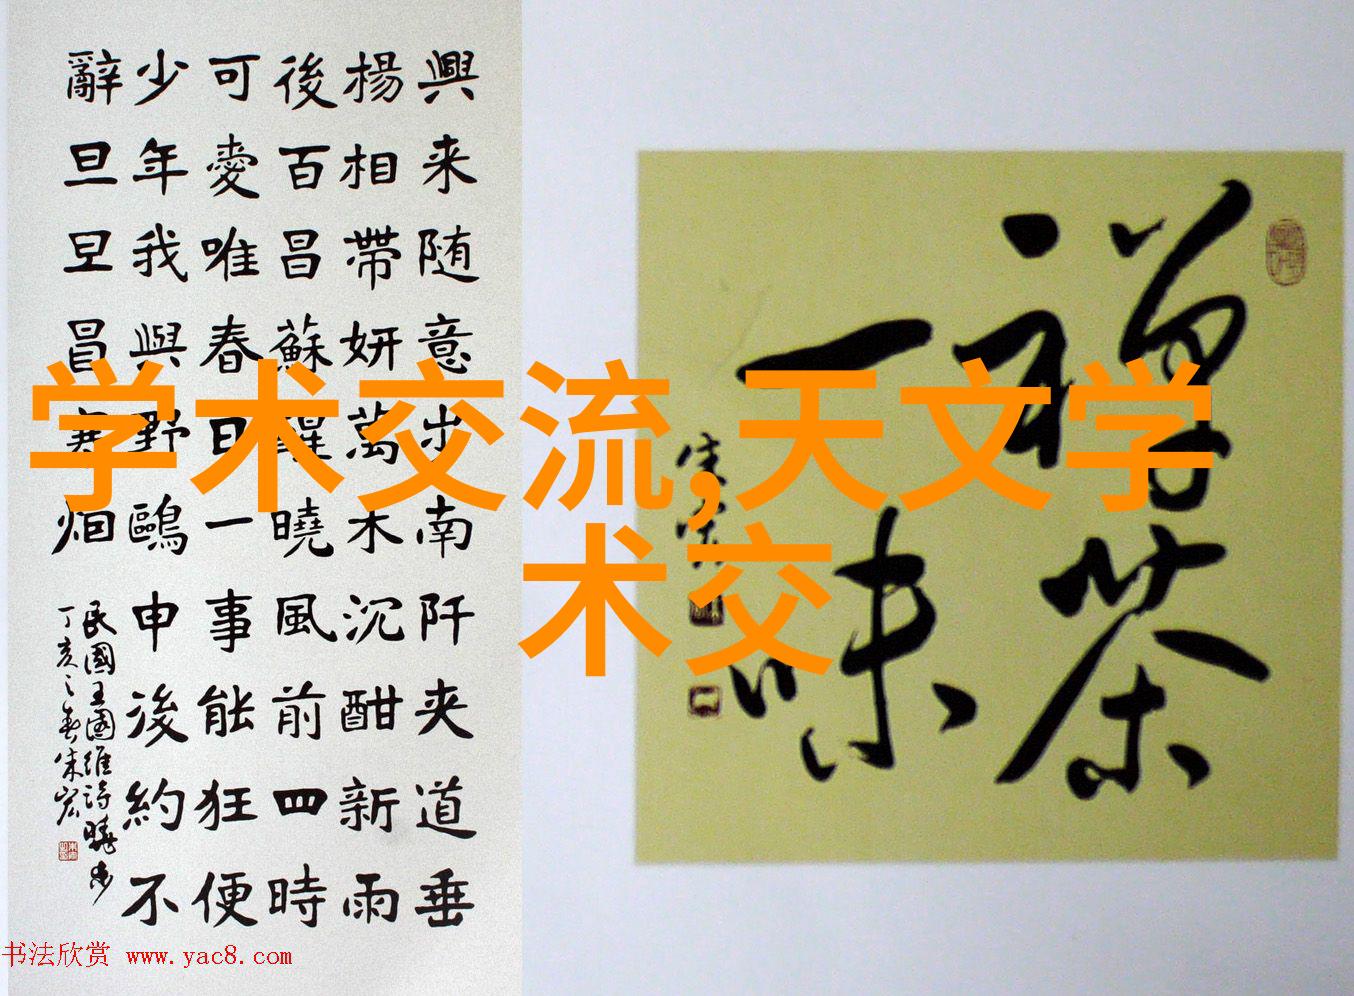 興来随意步南阡夹道垂
楊相帶妍萬木沉酣新雨
後百昌蘇醒曉風前四時
可愛唯春日一事能狂便
少年我與野鷗申後約不
辭旦旦冒寒烟
民國王國維詩曉步
丁亥之春朱宏
禅茶
一味
朱宏
学术交流,天文学
术交
书法欣赏 www.yac8.com